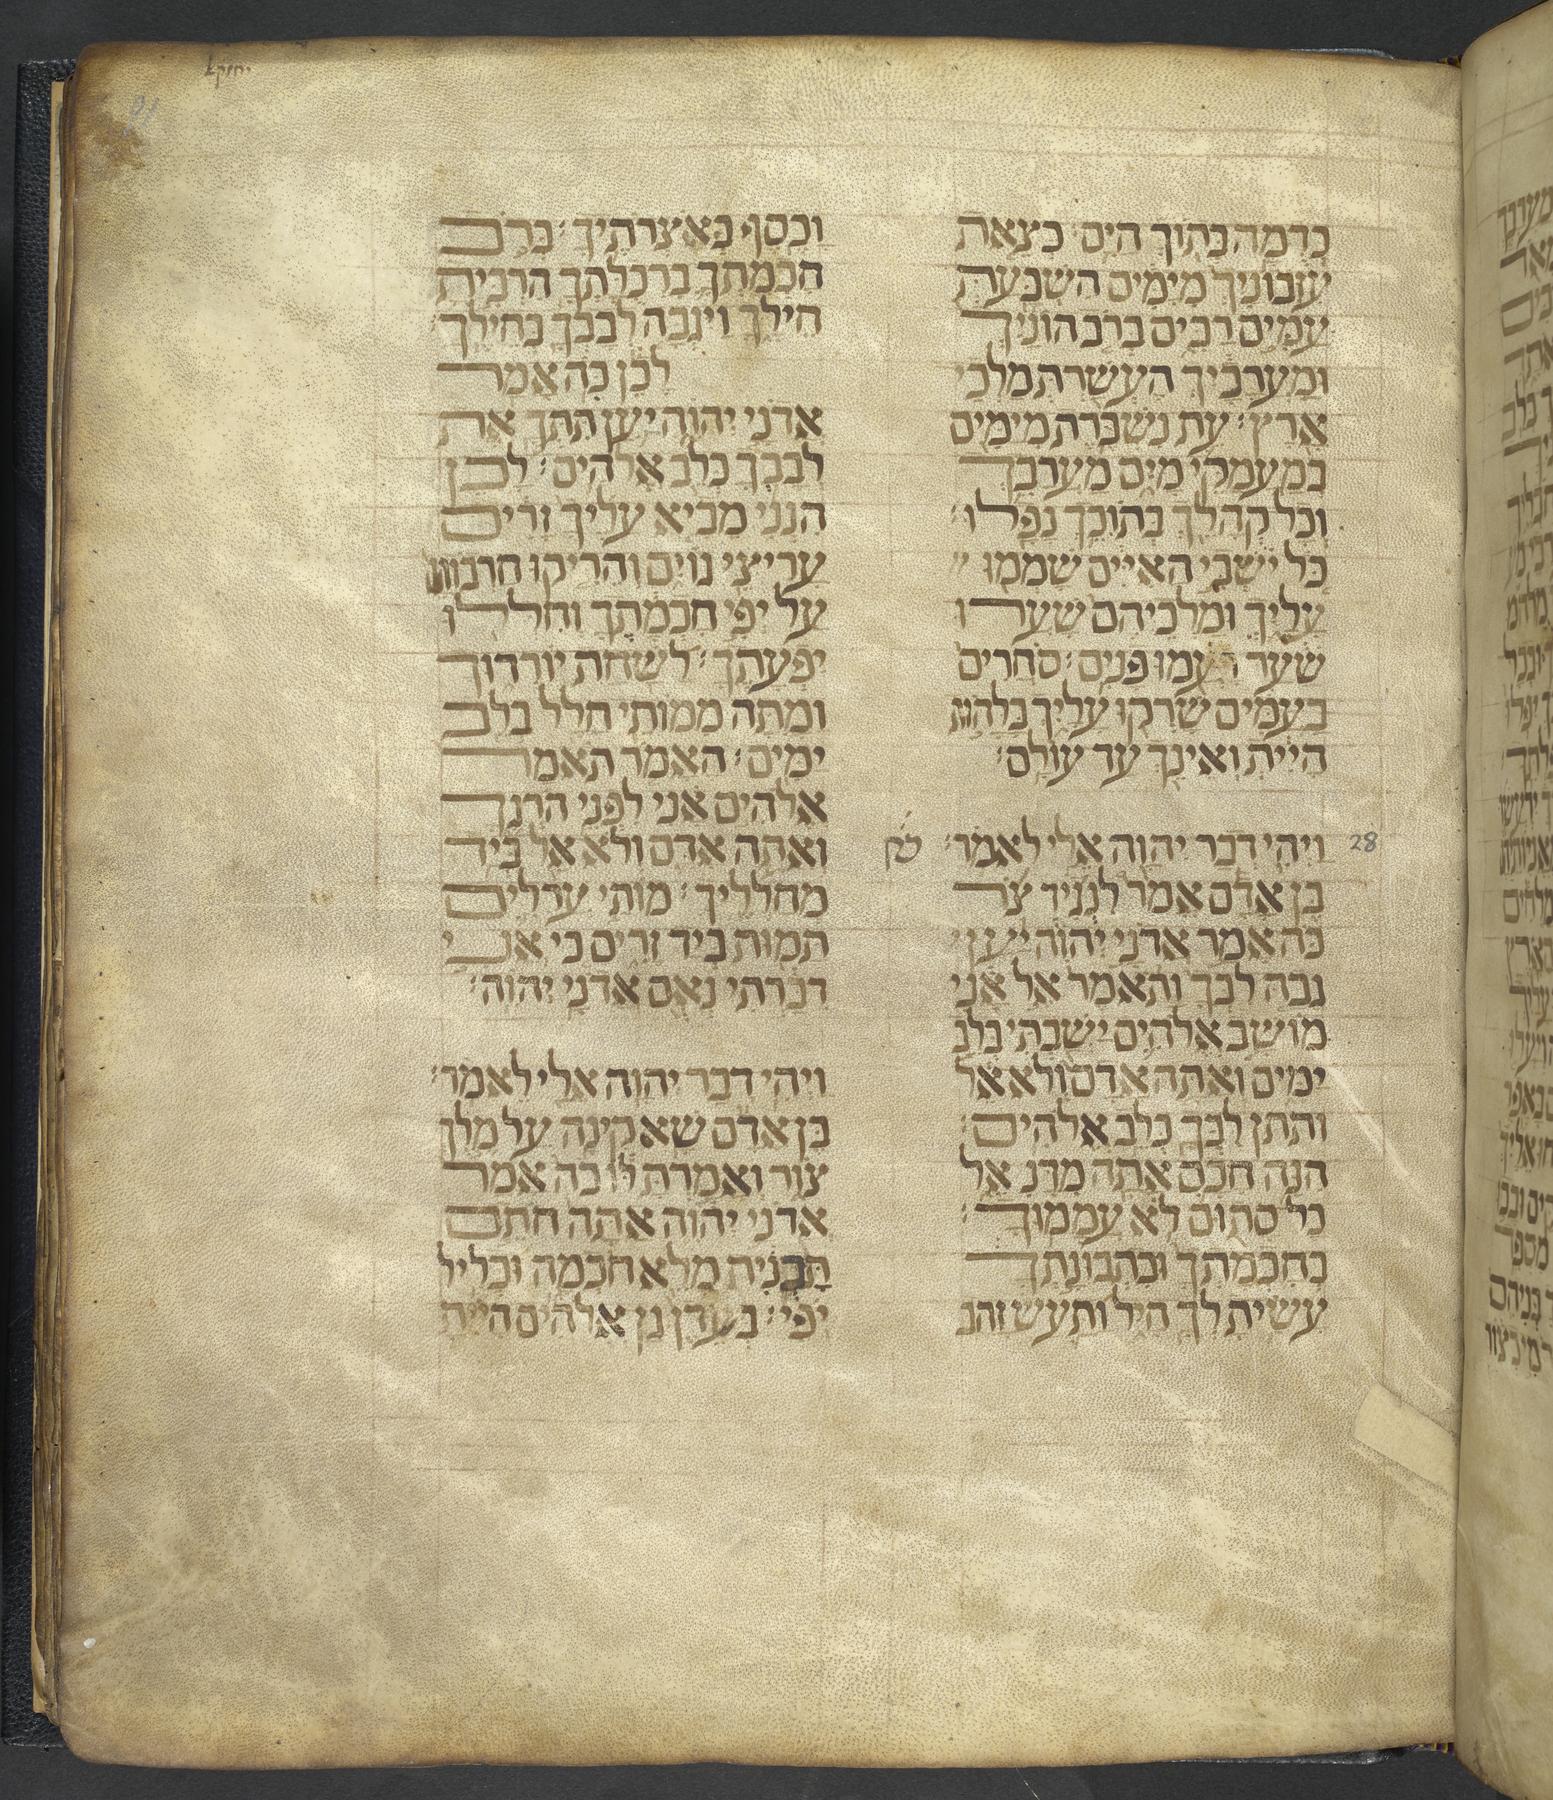 יחזקא
כדמה בתוך הים׃ בצאת
עזבוניך מימים השבעת
עמים רבים ברב הוניך
ומערביך העשרת מלכי
ארץ׃ עת נשברת מימים
במעמקי מים מערבך
וכל קהלך בתוכך נפלו׃
כל ישבי האיים שממו
עליך ומלכיהם שערו
שער רעמו פנים׃ סחרים
בעמים שרקו עליך בלהות
היית ואינך עד עולם׃
28 ויהי דבר יהוה אלי לאמר׃
בן אדם אמר לנגיד צר
כה אמר אדני יהוה יען
גבה לבך ותאמר אל אני
מושב אלהים ישבתי בלב
ימים ואתה אדם ולא אל
ותתן לבך כלב אלהים׃
הנה חכם אתה מדנאל
כל סתום לא עממוך׃
בחכמתך ובתבונתך
עשית לך חיל ותעש זהב
וכסף באצרתיך׃ ברב
חכמתך ברכלתך הרבית
חילך ויגבה לבבך בחילך׃
לכן כה אמר
אדני יהוה יען תתך את
לבבך כלב אלהים׃ לכן
הנני מביא עליך זרים
עריצי גוים והריקו חרבותם
על יפי חכמתך וחללו
יפעתך׃ לשחת יורדוך
ומתה ממותי חלל בלב
ימים׃ האמר תאמר
אלהים אני לפני הרגך
ואתה אדם ולא אל ביד
מחלליך׃ מותי ערלים
תמות ביד זרים כי אני
דברתי נאם אדני יהוה׃
ויהי דבר יהוה אלי לאמר׃
בן אדם שא קינה על מלך
צור ואמרת לו כה אמר
אדני יהוה אתה חתם
תכנית מלא חכמה וכליל
יפי׃ בעדן גן אלהים היית